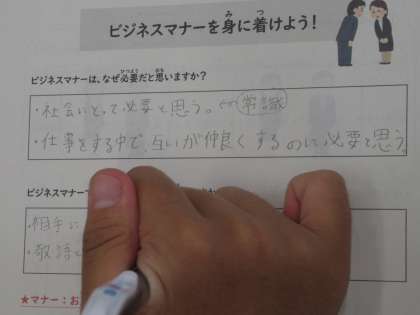 ビジネスマナーを身に着けよう!
ビジネスマナーは、なぜ必要だと思いますか?
・社会にとって必要と思う。← 常識
・仕事をする中で、互いが仲良くするのに必要と思う。
ビジネスマナーで
・相手に
・敬語
★マナー:お